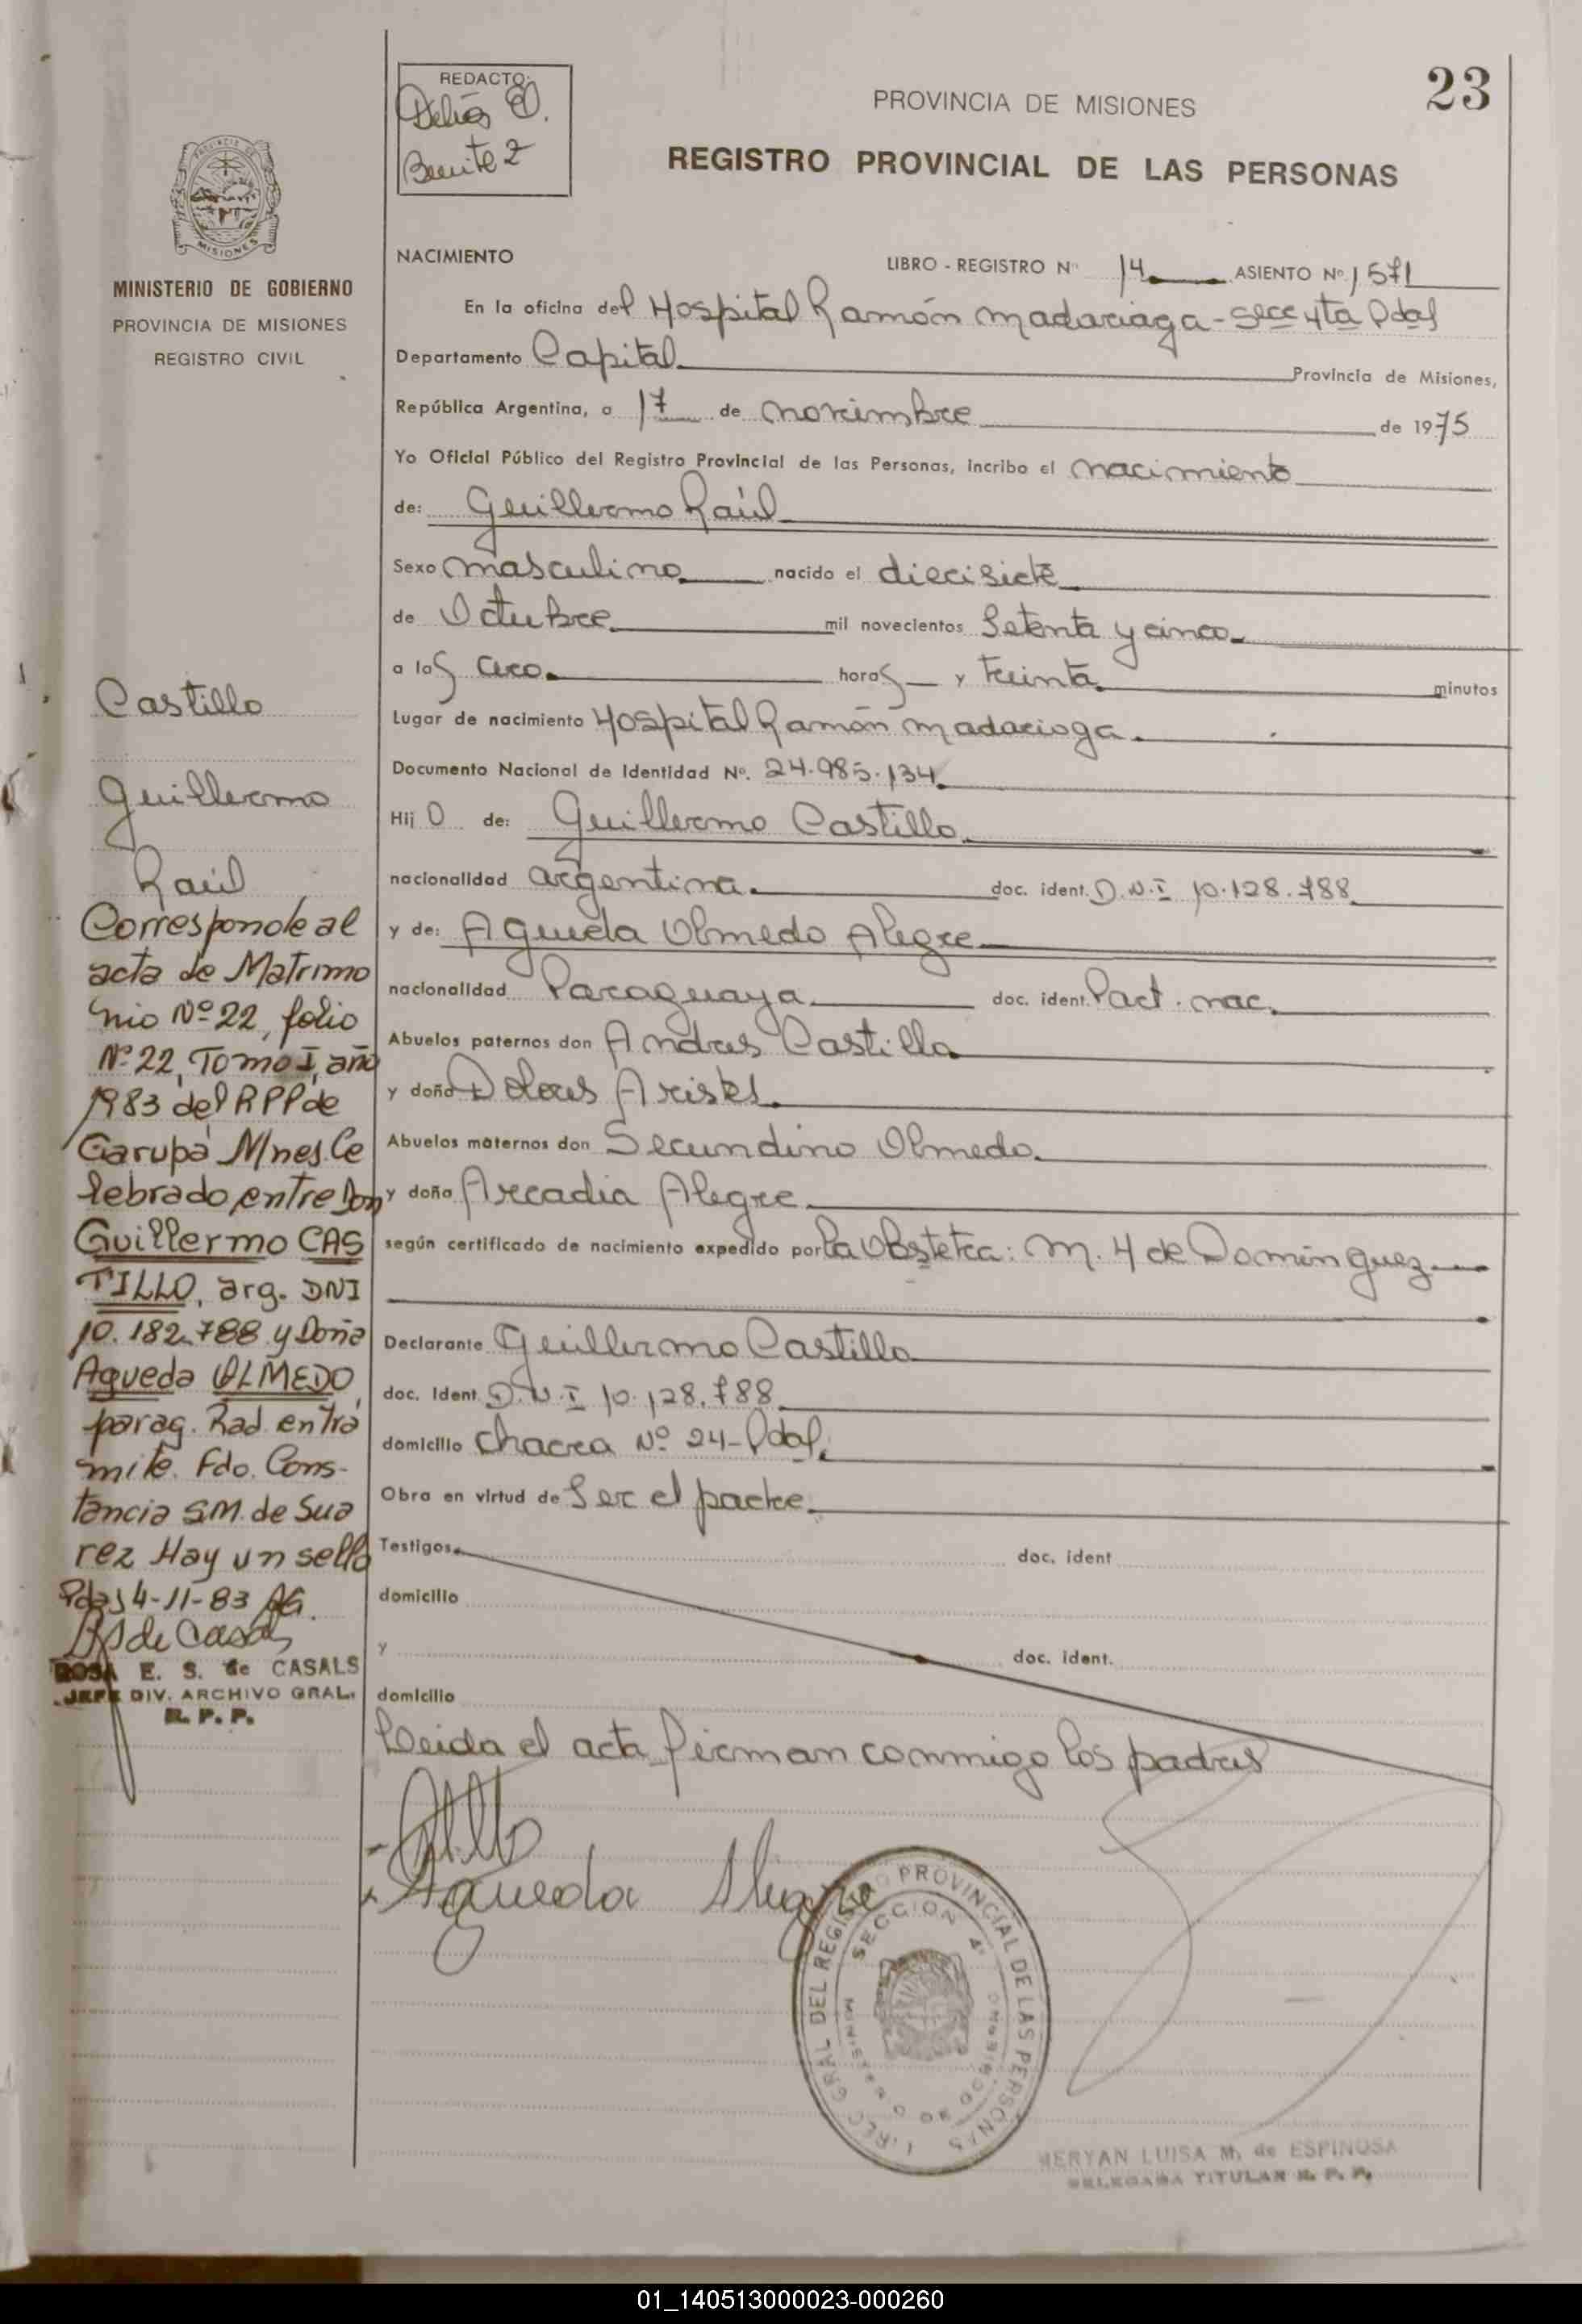 23
REDACTO:
Delia E.
Benitez
PROVINCIA DE MISIONES
REGISTRO PROVINCIAL DE LAS PERSONAS
MISIONES
MINISTERIO DE GOBIERNO
PROVINCIA DE MISIONES
REGISTRO CIVIL
NACIMIENTO
LIBRO - REGISTRO Nº 14 ASIENTO Nº 1571
En la oficina del Hospital Ramón Madariaga - Secc 4ta Pdas
Departamento Capital Provincia de Misiones,
República Argentina, a 17 de noviembre de 1975
Yo Oficial Público del Registro Provincial de las Personas, incribo el nacimiento
de: Guillermo Raúl
Sexo masculino nacido el diecisiete
de Octubre mil novecientos Setenta y cinco
a las horas y treinta minutos
Lugar de nacimiento Hospital Ramón Madariaga.
Documento Nacional de Identidad Nº. 24.985.134
Hij o de: Guillermo Castillo
nacionalidad argentina doc. ident. D.N.I 10.128.788
y de: Agueda Olmedo Alegre
nacionalidad Paraguaya doc. ident. Part. nac.
Abuelos paternos don Andres Castillo
y doña Dolores
Abuelos maternos don Secundino Olmedo
y doña Arcadia Alegre
según certificado de nacimiento expedido por la Obstetra: M. H de Domínguez
Declarante Guillermo Castillo
doc. Ident. D.N.I 10.128.788
domicilio Chacra Nº 24-Pdas.
Obra en virtud de Ser el padre
Testigos doc. ident
domicilio
y doc. ident.
domicilio
Leida el acta firman conmigo los padres
Agueda Alegre
Castillo
Guillermo
Raúl
Corresponde al
acta de Matrimo
nio Nº 22, folio
Nº 22, Tomo I, año
1983 del RPP de
Garupá Mnes. Ce
lebrado entre Don
Guillermo CAS
TILLO, arg. DNI
10.182.788 y Doña
Agueda OLMEDO,
parag. Rad. en trá
mite. Fdo. Cons-
tancia S.M. de Sua
rez Hay un sello
Pdas 4-11-83
de Casals
ROSA E. S. de CASALS
JEFE DIV. ARCHIVO GRAL.
R. P. P.
DIREC GRAL DEL REGISTRO PROVINCIAL DE LAS PERSONAS
SECCION 4ª
MINISTERIO DE GOBIERNO
MERYAN LUISA M. de ESPINOSA
DELEGADA TITULAR R. P. P.
01_140513000023-000260